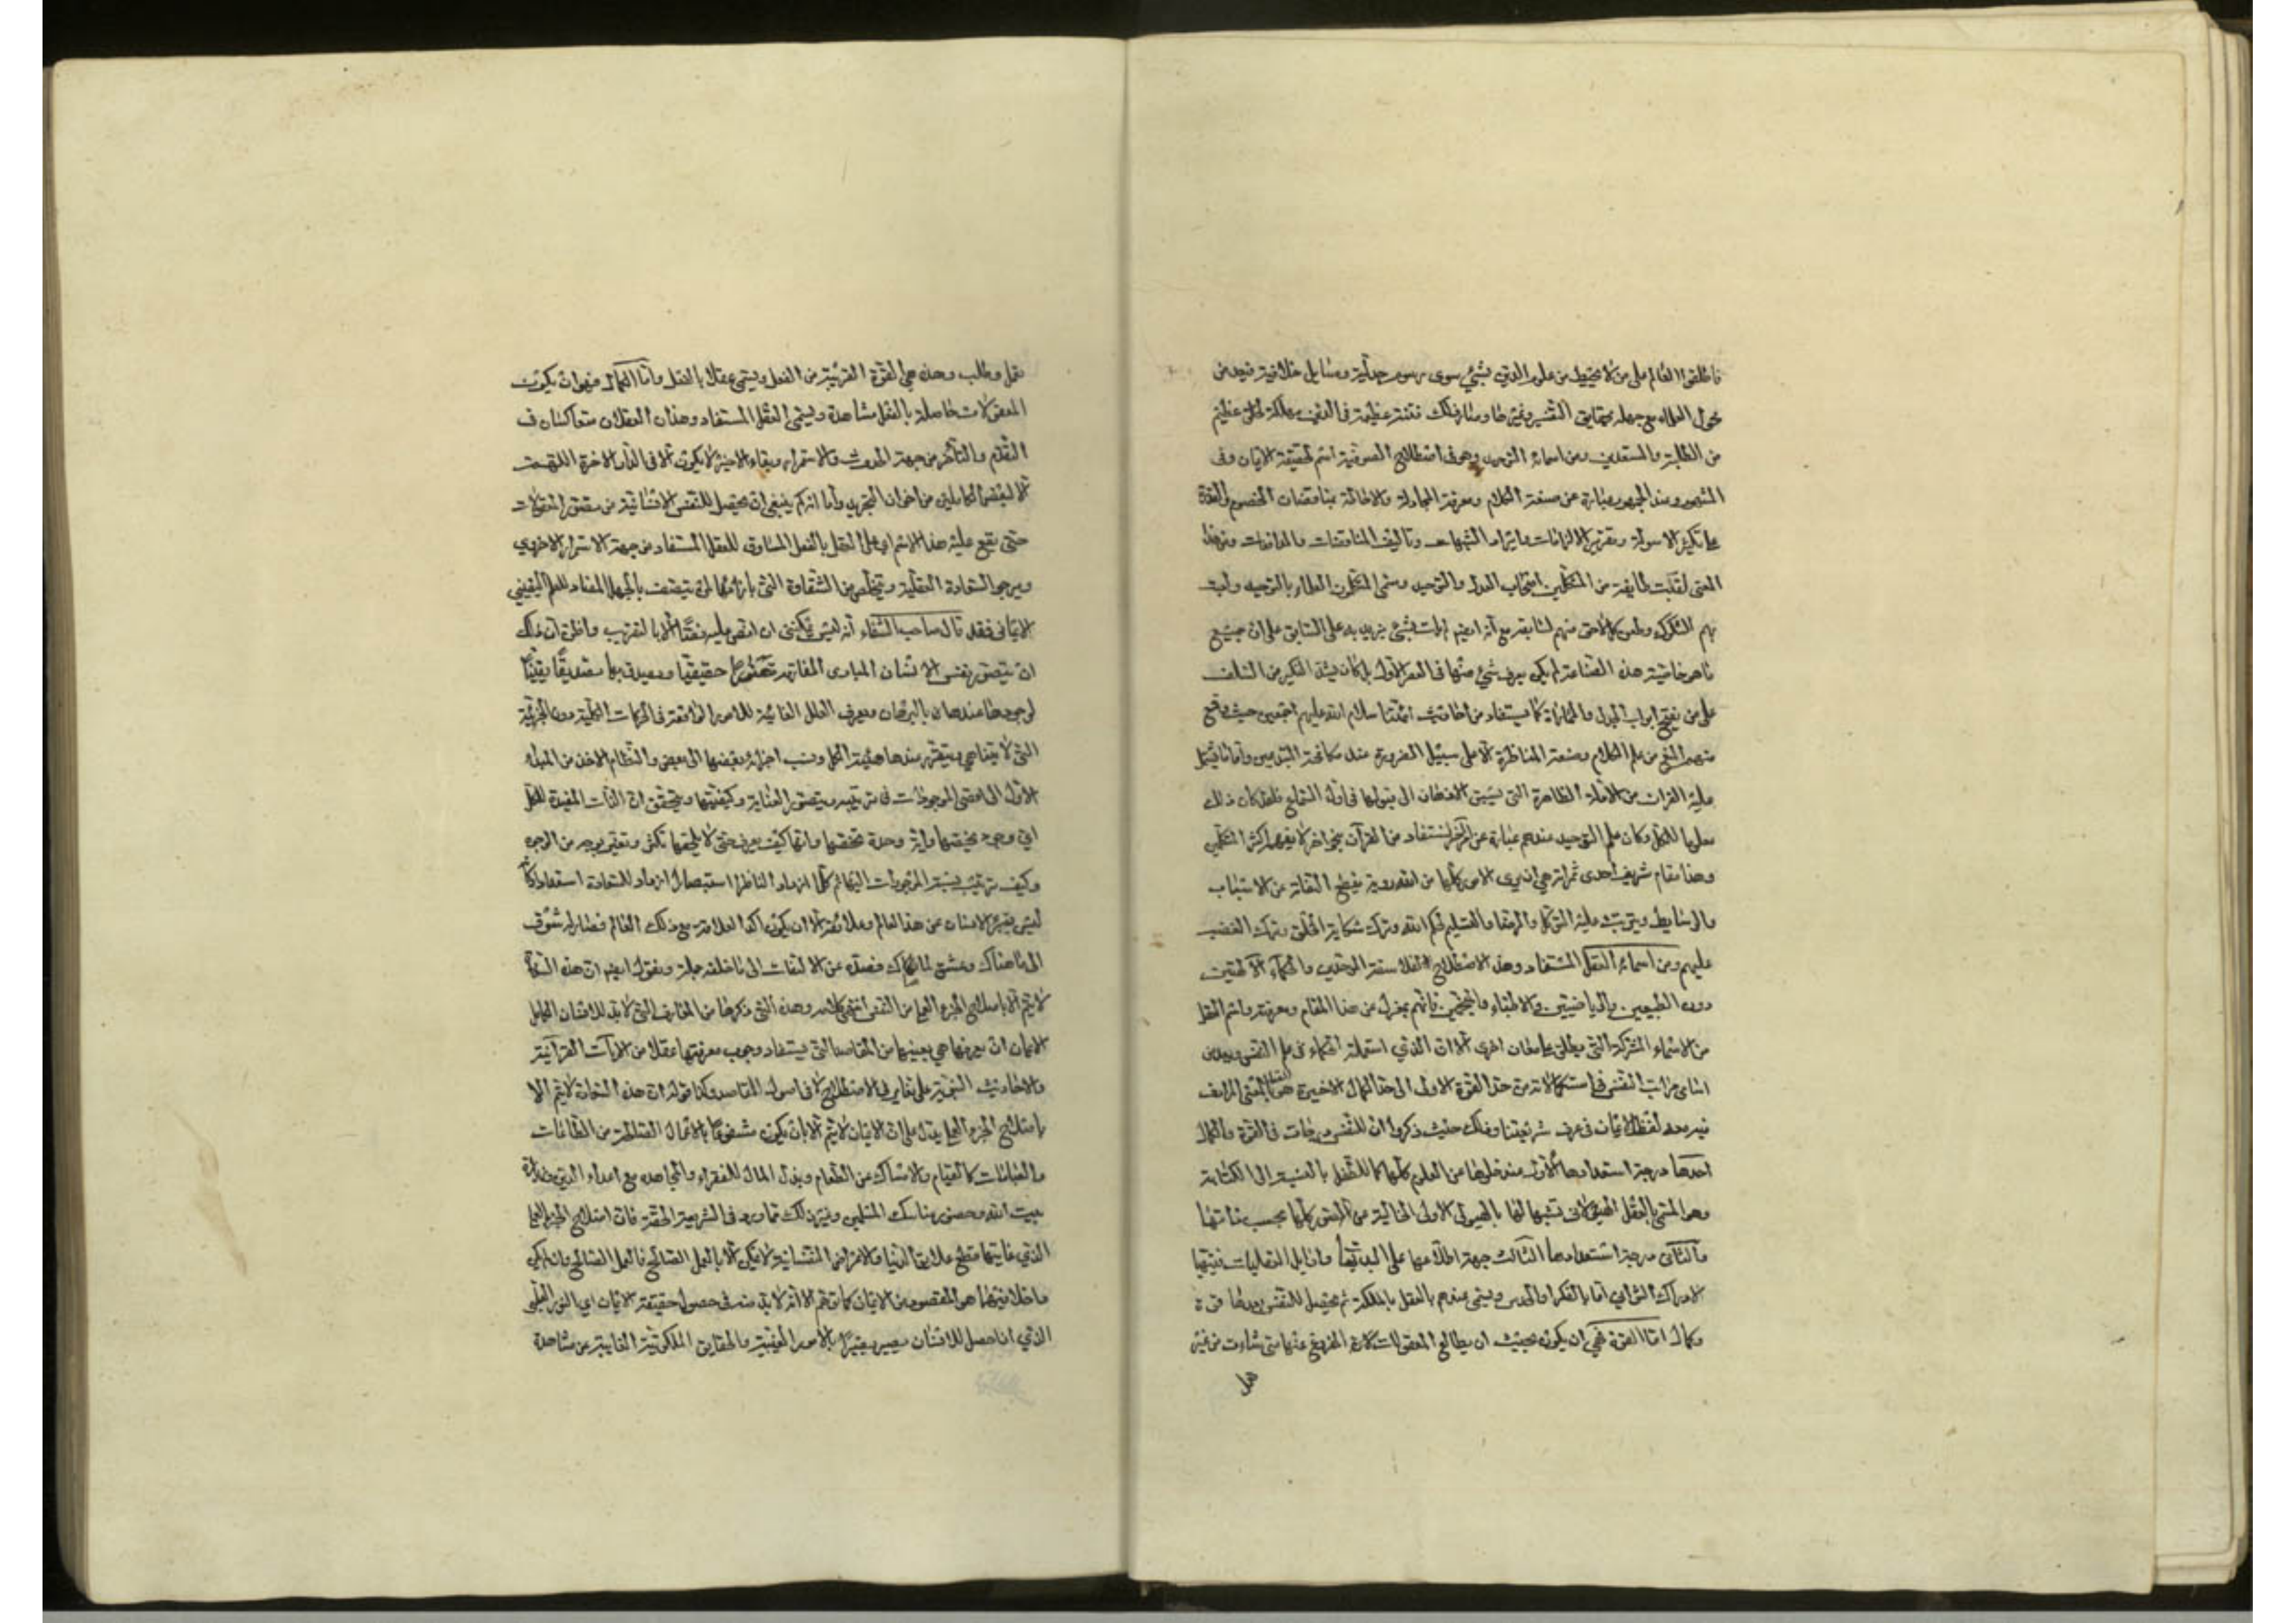 فاطلقوا العالم على من لا يحيط من علوم الدين بشيء سوى رسوم جدلية ومسايل خلافية فيعد من
فحول العلماء مع جهله بحقايق التفسير وغيرها وصار ذلك فتنة عظيمة في الدين مهلكة لخلق عظيم
من الطلبة والمستعدين ومن اسمائه التوحيد وهو في اصطلاح الصوفية اسم لحقيقة الايمان وفي
المشهور وعند الجمهور عبارة عن صنعة الكلام ومعرفة المجادلة والاحاطة بمناقضات الخصوم والقدرة
على تكثير الاسولة وتقرير الالزامات وايراد الشبهات وتاليف المناقضات والمعاندات وبهذا
المعنى لقبت طايفة من المتكلمين اصحاب العدل والتوحيد وسمى المتكلمون العلماء بالتوحيد
بهم الشكوك وطعن كل لاحق منهم لسابقه مع انه ايضا بشيء يزيد به على السابق على ان جميع
ما هو خاصية هذه الصناعة لم يكن يعرف شيء منها في العصر الاول بل كان يشتد النكير من السلف
على من يفتح ابواب الجدل والمماراة كما يستفاد من احاديث ائمتنا سلام الله عليهم اجمعين حيث وقع
منهم المنع من علم الكلام وصنعة المناظرة الا على سبيل الضرورة عند مكافحة المبتدعين واما ما يشتمل
عليه القران من الادلة الظاهرة التي يسبق الاذهان الى قبولها في اول السماع فلقد كان ذلك
معلوما للكل وكان علم التوحيد عندهم عبارة عن امر اخر يستفاد من القرآن بنحو اخر لا يفهم اكثر المتكلمين
وهذا مقام شريف احدى ثمراته هي ان يرى الامور كلها من الله رؤية يقطع التفاته عن الاسباب
والوسايط ويترتب عليه التوكل والرضا والتسليم لحكم الله وترك شكاية الخلق وترك الغضب
عليهم ومن اسمائه العقل المستفاد وهذا الاصطلاح الفلاسفة الموحدين والحكماء الالهيين
دون الطبيعيين والرياضيين والاطباء والمنجمين فانهم بمعزل عن هذا المقام ومعرفته واسم العقل
من الاسماء المشتركة التي يطلق على معان اخرى الا ان الذي استعمله الحكماء في علم النفس
اسامي مراتب النفس في استكمالاته من حد القوة الاولى الى حد الكمال الاخيرة هو بالمعنى المرادف
فيه معه لفظ الايمان في عرف شريعتنا وذلك حيث ذكروا ان للنفس درجات في القوة والكمال
احدها درجة استعدادها الاول عند خلوها من العلوم كلها كما للطفل بالنسبة الى الكتابة
وهو المسمى بالعقل الهيولاني تشبيها لها بالهيولى الاولى الخالية من الصور كلها بحسب ذاتها
والثاني درجة استعدادها الثالث جهة اطلاعها على البديهيات واوايل العقليات فيتهيأ
لادراك الثواني اما بالفكر او الحدس ويسمى عندهم بالعقل بالملكة ثم يحصل للنفس بعدها قوة
وكمال اما القوة فهي ان يكون بحيث ان يطالع المعقولات المفروغ عنها متى شاءت من غير
عمل
عمل وطلب وهذه هي القوة القريبة من الفعل ويسمى عقلا بالفعل واما الكمال فهو ان يكون
المعقولات حاصلة بالفعل مشاهدة ويسمى العقل المستفاد وهذان العقلان متعاكسان في
التقدم والتأخر من جهة الحدوث والاستمرار وبقاء الاخير لا يكون الا في الدار الاخرة اللهم
الا لبعض الكاملين من اخوان التجريد واما انه كم ينبغي ان يحصل للنفس الانسانية من تصور المعقولات
حتى يقع عليه هذا الاسم اعني العقل بالفعل المساوق للعقل المستفاد من جهة الاستمرار الاخروي
ويرجو السعادة العقلية ويتخلص من الشقاوة التي بازائها لمن يتصف بالجهل المضاد للعلم اليقيني
الايماني فقد قال صاحب الشفاء انه ليس يمكنني ان انص عليه نصا الا بالتقريب واظن ان ذلك
ان يتصور نفس الانسان المبادي المفارقة تصورا حقيقيا ويصدق بها تصديقا يقينيا
لوجودها عندها بالبرهان ويعرف العلل الغائية للامور الواقعة في الحركات الكلية دون الجزئية
التي لا يتناهى ويتقرر عندها هيئة الكل ونسب اجزائه بعضها الى بعض والنظام الاخذ من المبدأ
الاول الى اقصى الموجودات في ترتيبه ويتصور العناية وكيفيتها ويتحقق ان الذات المفيدة للكل
اي وجود يخصها واية وحدة تخصها وانها كيف يعرف حتى لا يلحقها تكثر وتغير بوجه من الوجوه
وكيف ترتيب نسبة الموجودات اليها ثم كلما ازداد الناظر استبصارا ازداد للسعادة استعدادا وكأنه
ليس يتبرأ الانسان عن هذا العالم وعلائقه الا ان يكون اكد العلاقة مع ذلك العالم فصار له شوق
الى ما هناك وعشق لما هناك فصده عن الالتفات الى ما خلفه جملة ونقول ايضا ان هذه السعادة
لا يتم الا باصلاح الجزء العملي من النفس انتهى كلامه وهذه التي ذكرها من المعارف التي لا بد للانسان الكامل
الايمان ان يعرفها هي بعينها من المقاصد التي يستفاد وجوب معرفتها عقلا من الايات القرآنية
والاحاديث النبوية على تغاير في الاصطلاح لا في اصول المقاصد وكذا قوله ان هذه السعادة لا يتم الا
باصلاح الجزء العملي يدل على ان الايمان لا يتم الا بان يكون مشفوعا بالاعمال الصالحة من الطاعات
والعبادات كالصيام والامساك عن الطعام وبذل المال للفقراء والمجاهدة مع اعداء الدين وزيارة
بيت الله وحضور مناسك المسلمين وغير ذلك مما ورد في الشريعة الحقة فان اصلاح الجزء العملي
الذي غايتها قطع علايق الدنيا والاغراض النفسانية لا يمكن الا بالعمل الصالح فالعمل الصالح وان لم يكن
داخلا فيما هو المقصود من الايمان كما توهم الا انه لا بد منه في حصول حقيقة الايمان اي النور العقلي
الذي اذا حصل للانسان يصير بصيرا بالامور الغيبية والحقايق الملكوتية الغايبة عن مشاهدة